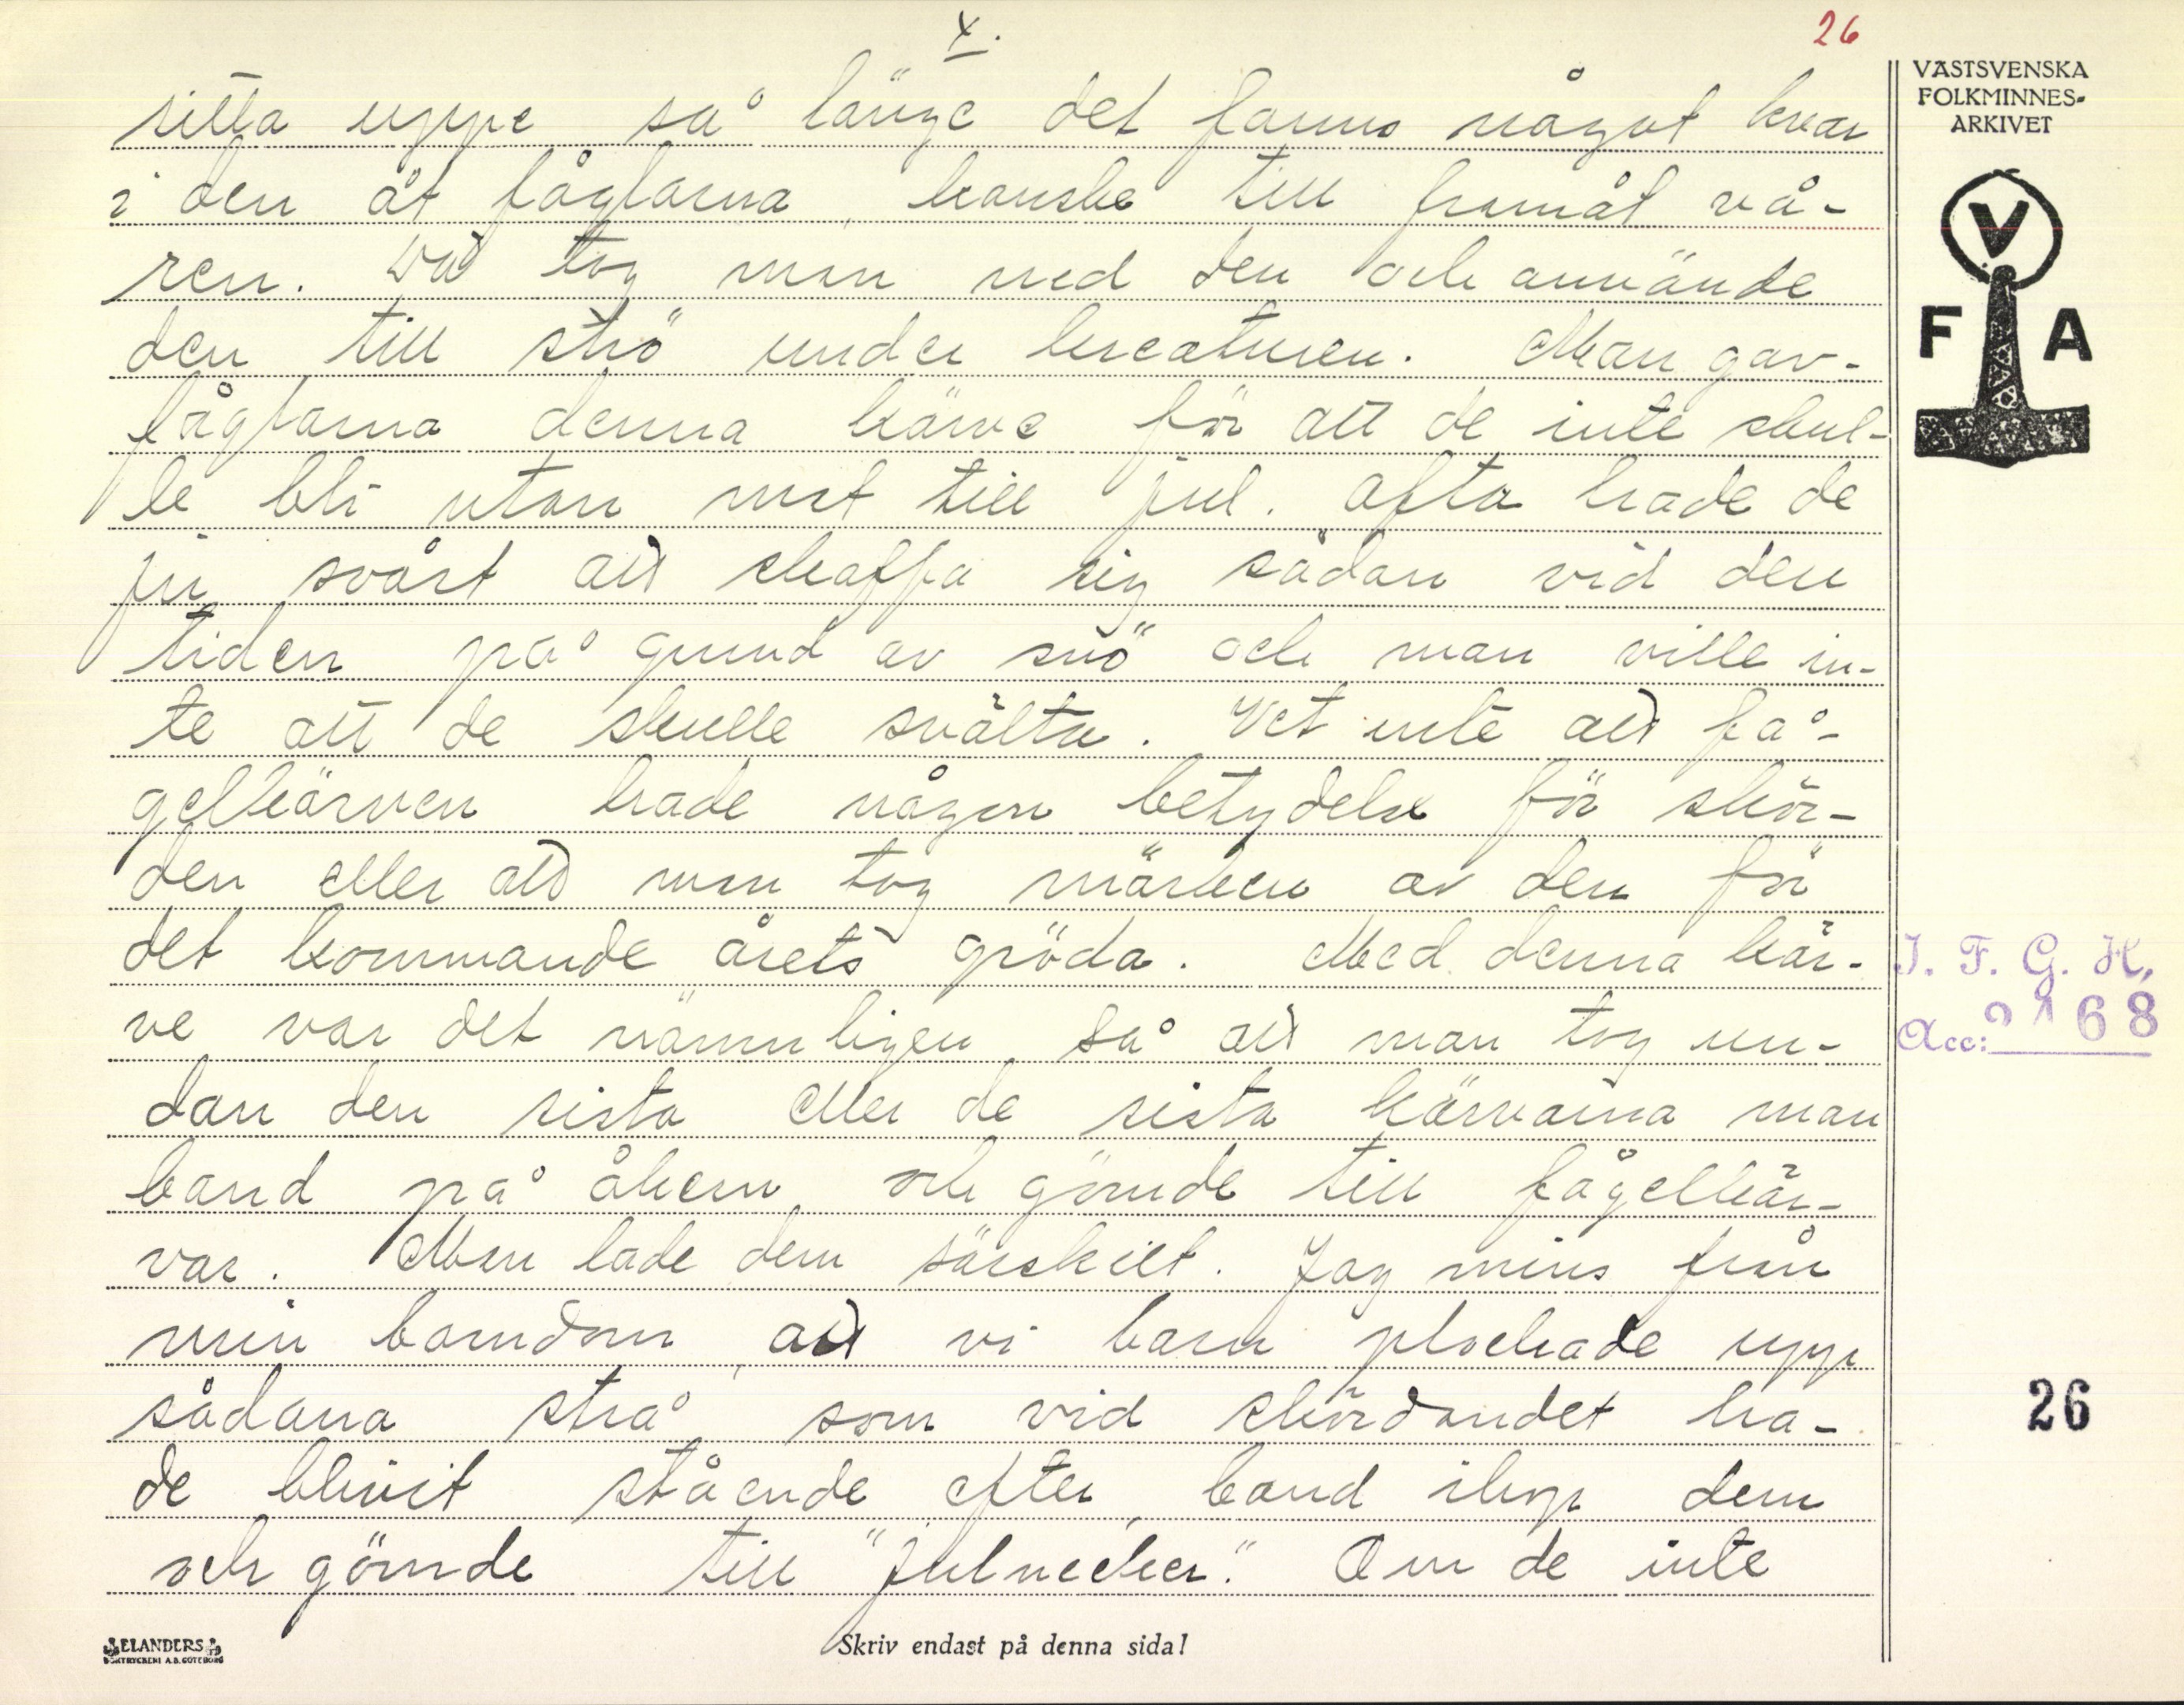 X.
26
VÄSTSVENSKA
FOLKMINNES-
ARKIVET
V
F A
sitta uppe så länge det fanns något kvar
i den åt fåglarna, kanske till framåt vå-
ren. Då tog man ned den och använde
den till strö under kreaturen. Man gav-
fåglarna denna kärve för att de inte skul-
le bli utan mat till jul. Ofta hade de
ju svårt att skaffa sig sådan vid den
tiden på grund av snö och man ville in-
te att de skulle svälta. Vet inte att få-
gelkärven hade någon betydelse för skör-
den eller att man tog märken av den för
det kommande årets gröda. Med denna kär-
ve var det nämnligen så att man tog un-
dan den sista eller de sista kärvarna man
band på åkern och gömde till fågelkär-
var. Man lade dem särskilt. Jag mins från
min barndom, att vi barn plockade upp
sådana strå som vid skördandet ha-
de blivit stående efter, band ihop dem
och gömde till "julnecker." Om de inte
I. F. G. H.
Acc: 2168
26
ELANDERS
BOKTRYCKERI A.B. GÖTEBORG
Skriv endast på denna sida!